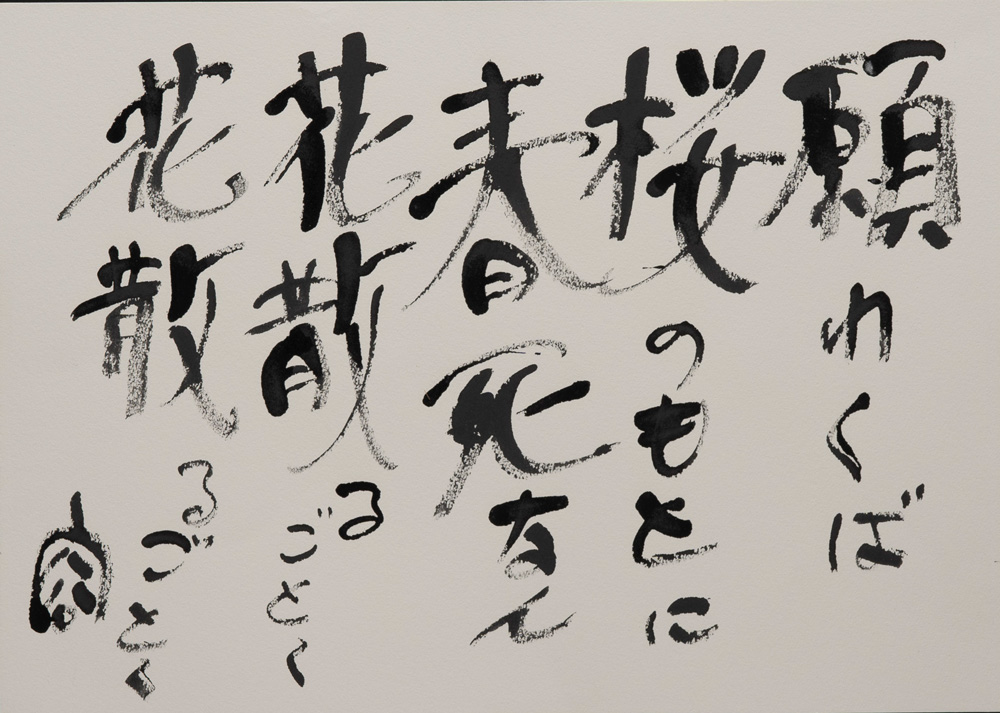 願わくば
桜のもとに
春死なん
花散るごとく
花散るごとく